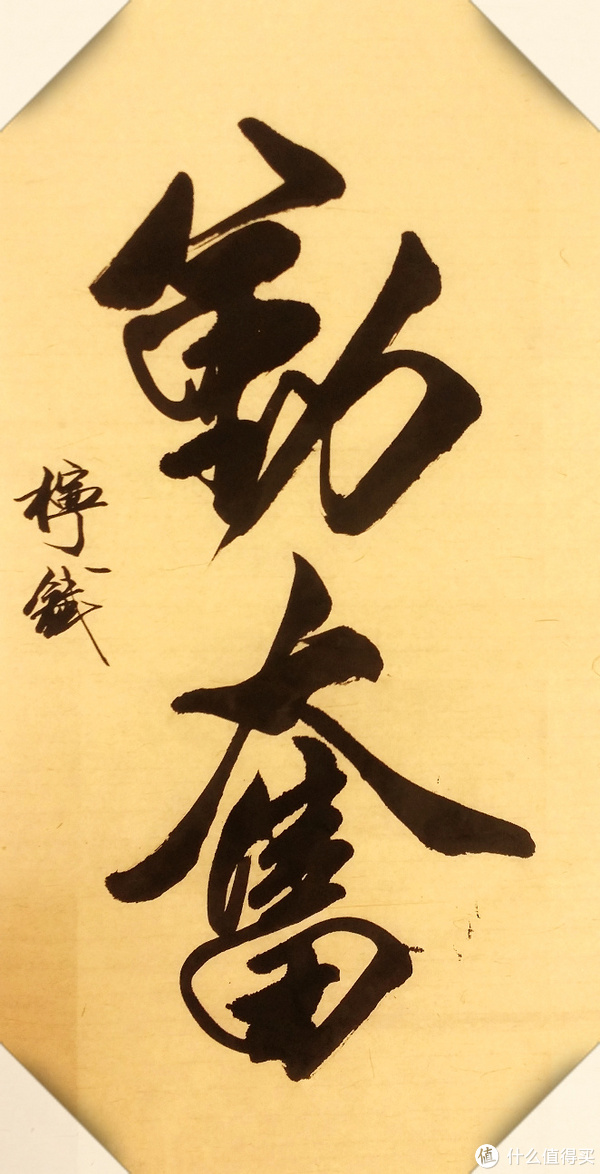 勤奮
值 什么值得买